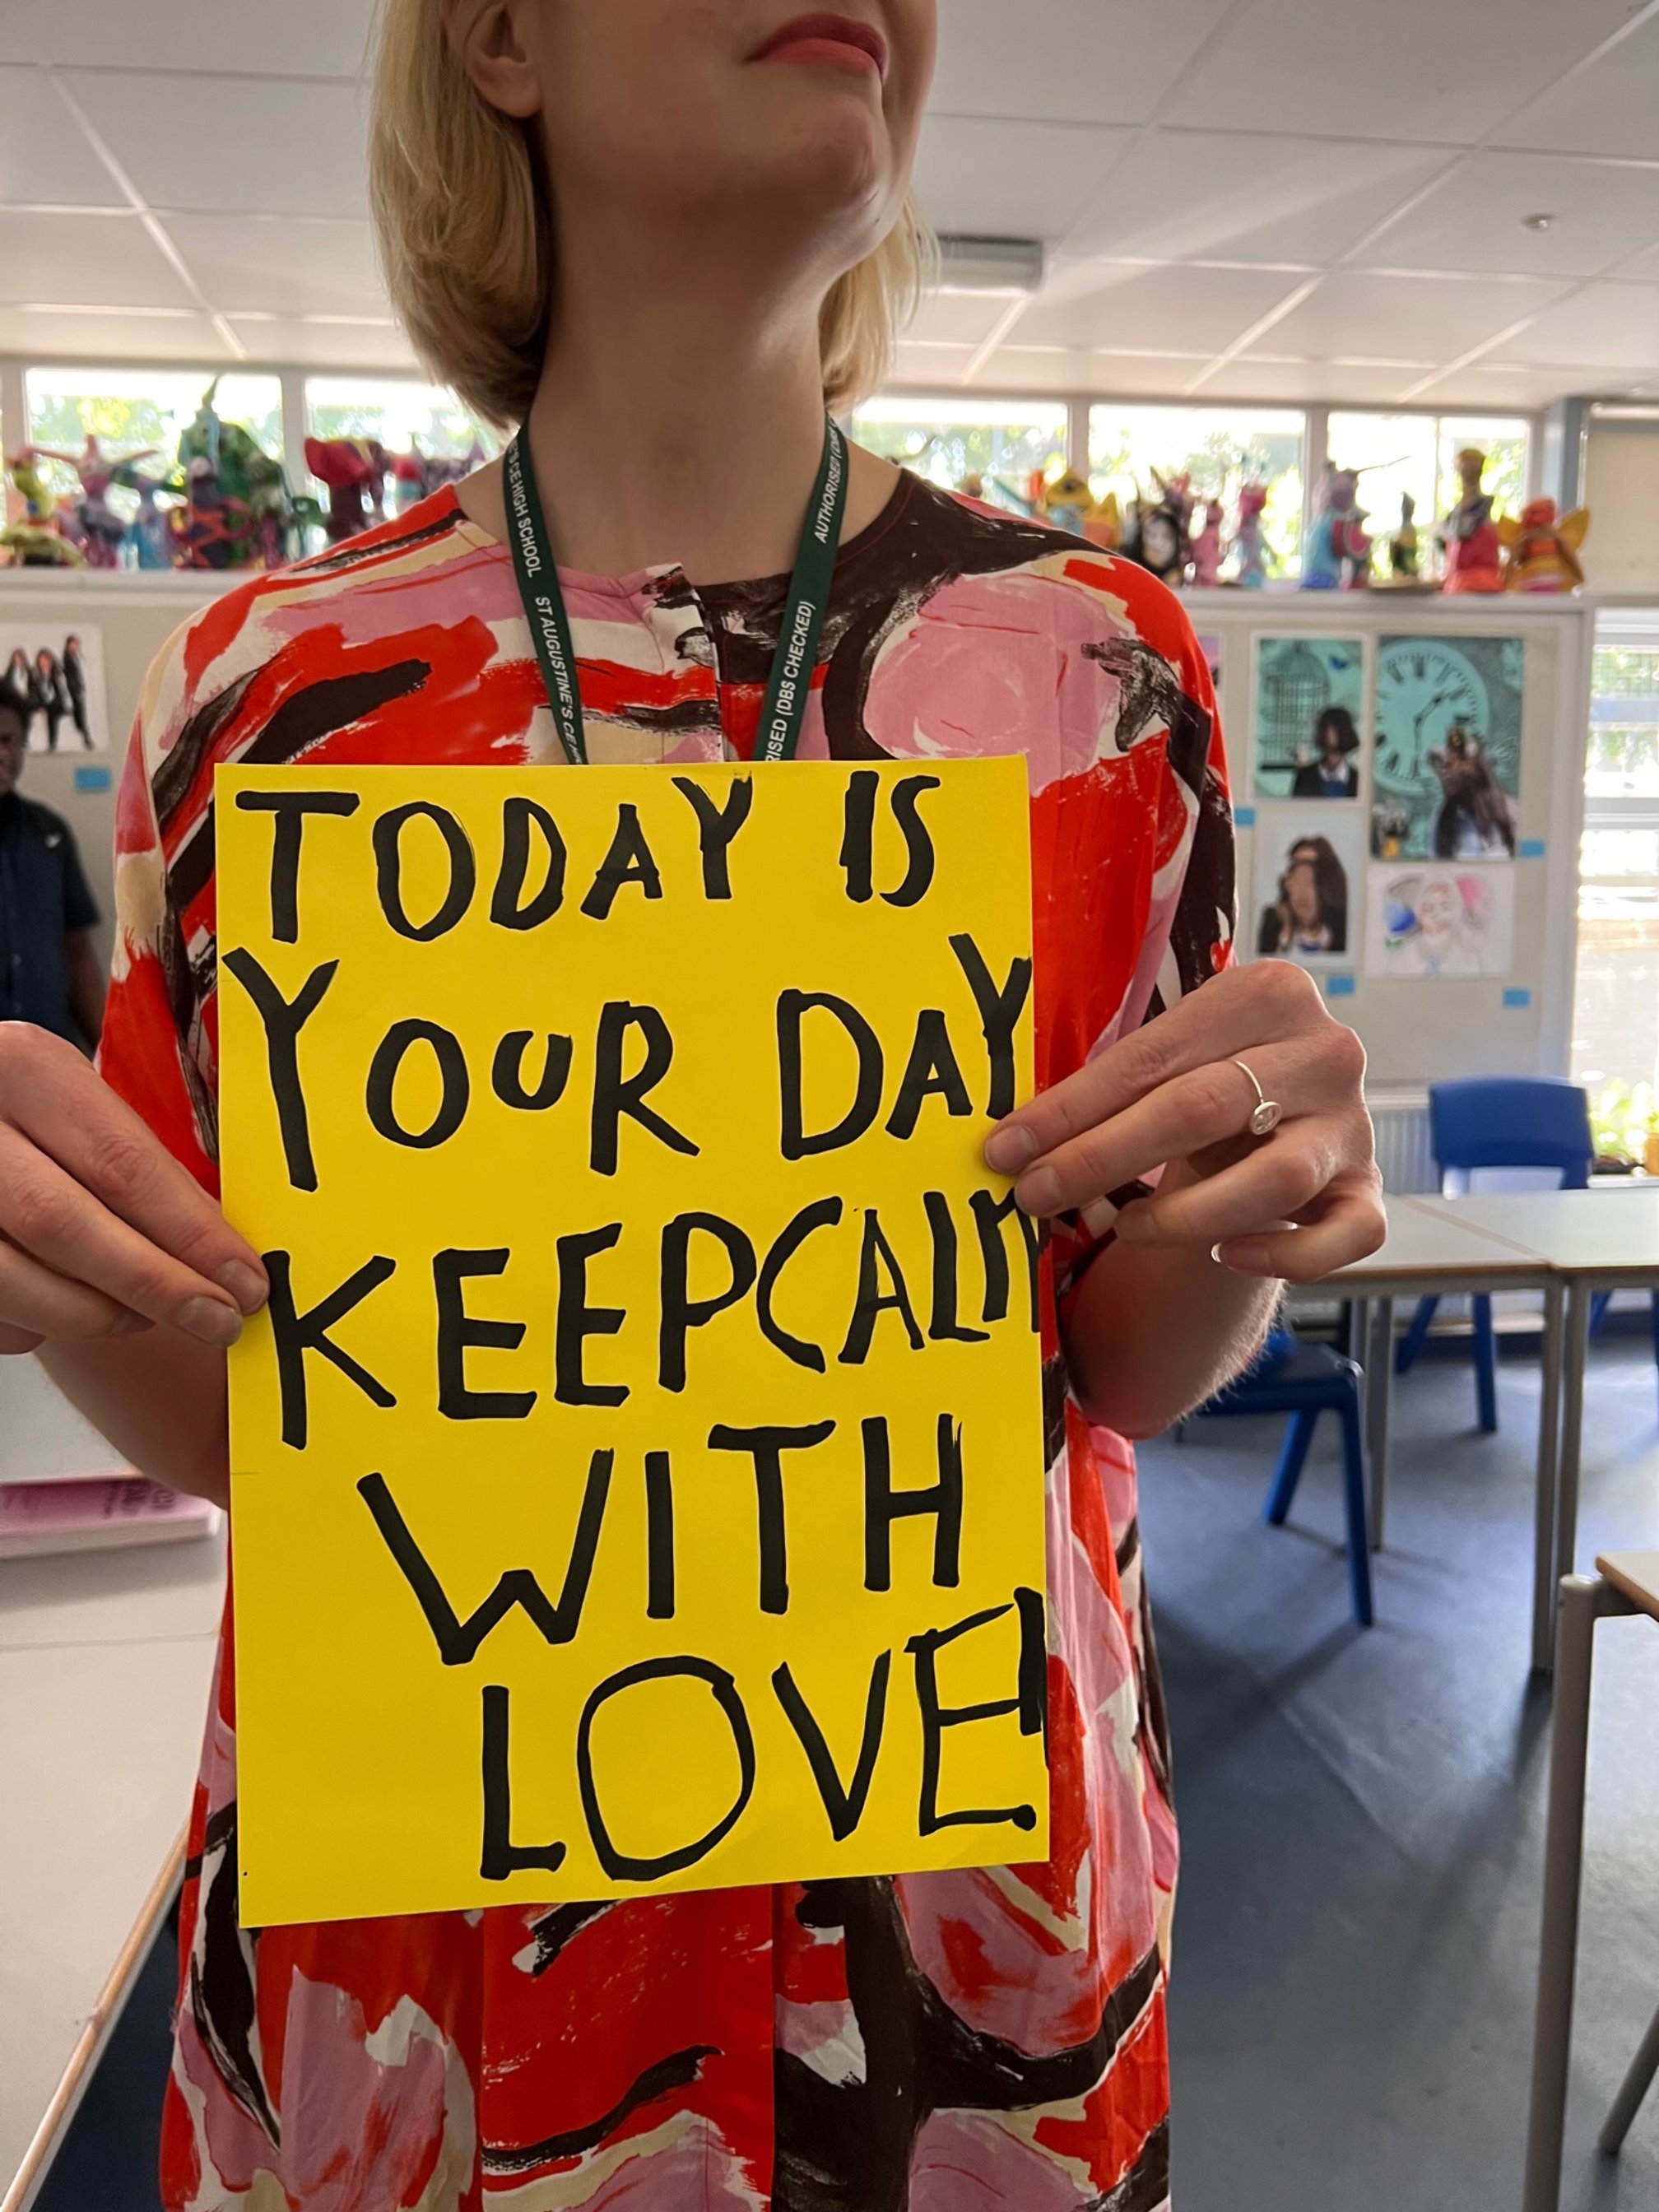 TODAY IS
YOUR DAY
KEEPCALM
WITH
LOVE!
CE HIGH SCHOOL
ST AUGUSTINE'S CE
AUTHORISED
RISED (DBS CHECKED)